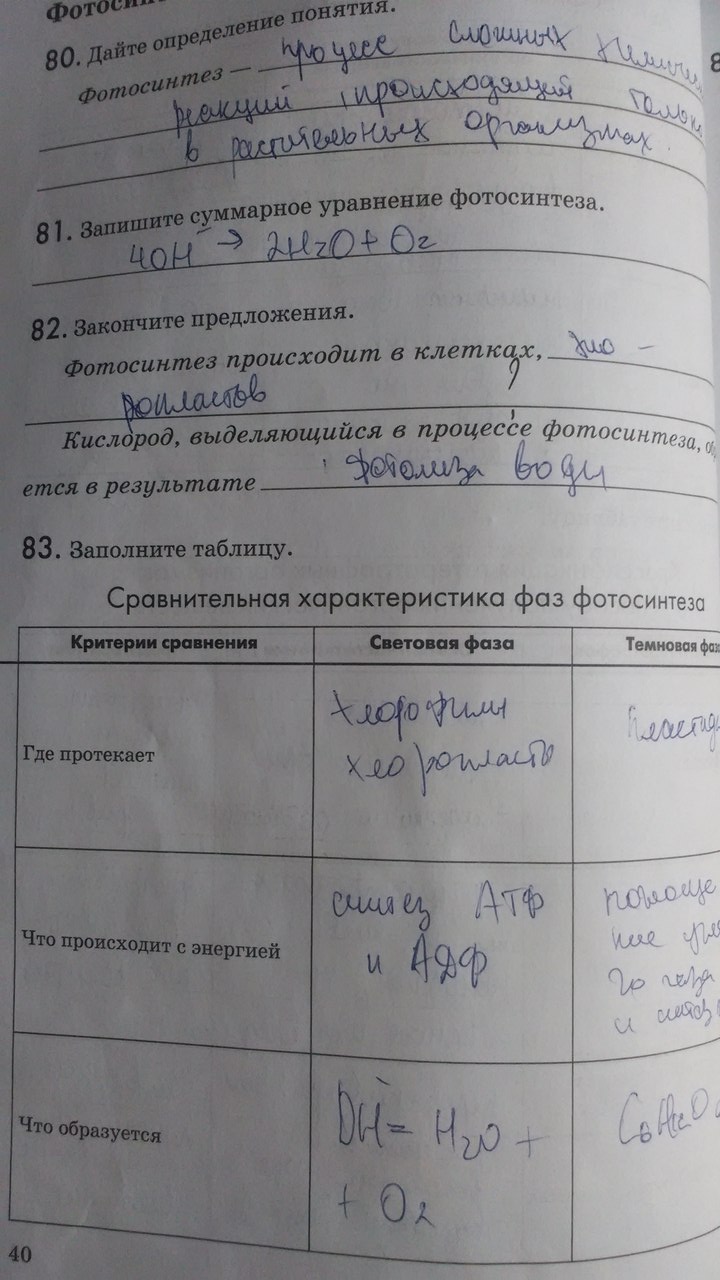 Фотосин
80. Дайте определение понятия.
Фотосинтез — процесс сложных
реакций происходящий только
в растительных организмах.
81. Запишите суммарное уравнение фотосинтеза.
4OH⁻ → 2H₂O + O₂
82. Закончите предложения.
Фотосинтез происходит в клетках, хло-
ропластов
Кислород, выделяющийся в процессе фотосинтеза, об
ется в результате фотолиза воды
83. Заполните таблицу.
Сравнительная характеристика фаз фотосинтеза
Критерии сравнения Световая фаза Темновая фаз
Где протекает хлорофилл Пластид
хлоропласты
Что происходит с энергией синтез АТФ
и АДФ
Что образуется OH⁻ = H₂O +
+ O₂
40
8